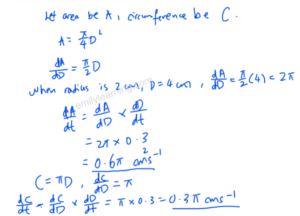 Let area be A, circumference be C.
A = π/4 D²
dA/dD = π/2 D
when radius is 2cm, D = 4cm, dA/dD = π/2 (4) = 2π
dA/dt = dA/dD × dD/dt
= 2π × 0.3
= 0.6π cm²s⁻¹
C = πD, dC/dD = π
dC/dt = dC/dD × dD/dt = π × 0.3 = 0.3π cms⁻¹